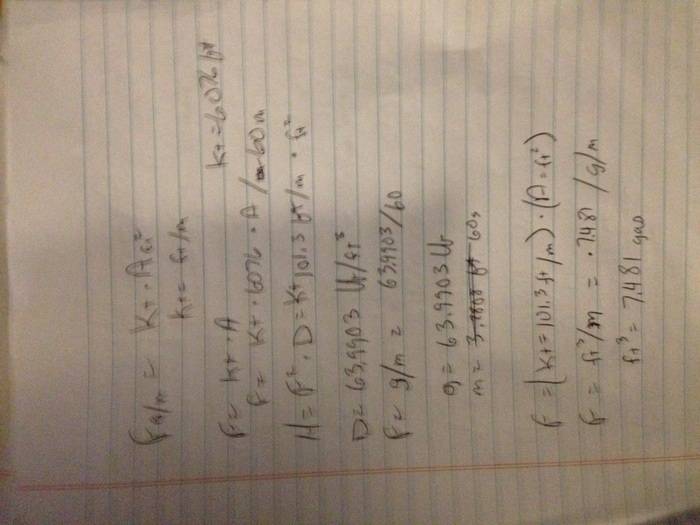 F g/m = Kt · A ft²
Kt = ft/m
F = Kt · A Kt = 6076 ft
F = Kt · 6076 · A / 60 m
H = F² · D = Kt 101.3 ft/m · ft²
D = 63.9903 lb/ft³
F = g/m = 63.9903/60
g = 63.9903 lb
m = 60s
F = (Kt = 101.3 ft/m) · (A = ft²)
F = ft³/m = · 7.481 / g/m
ft³ = 7.481 gao